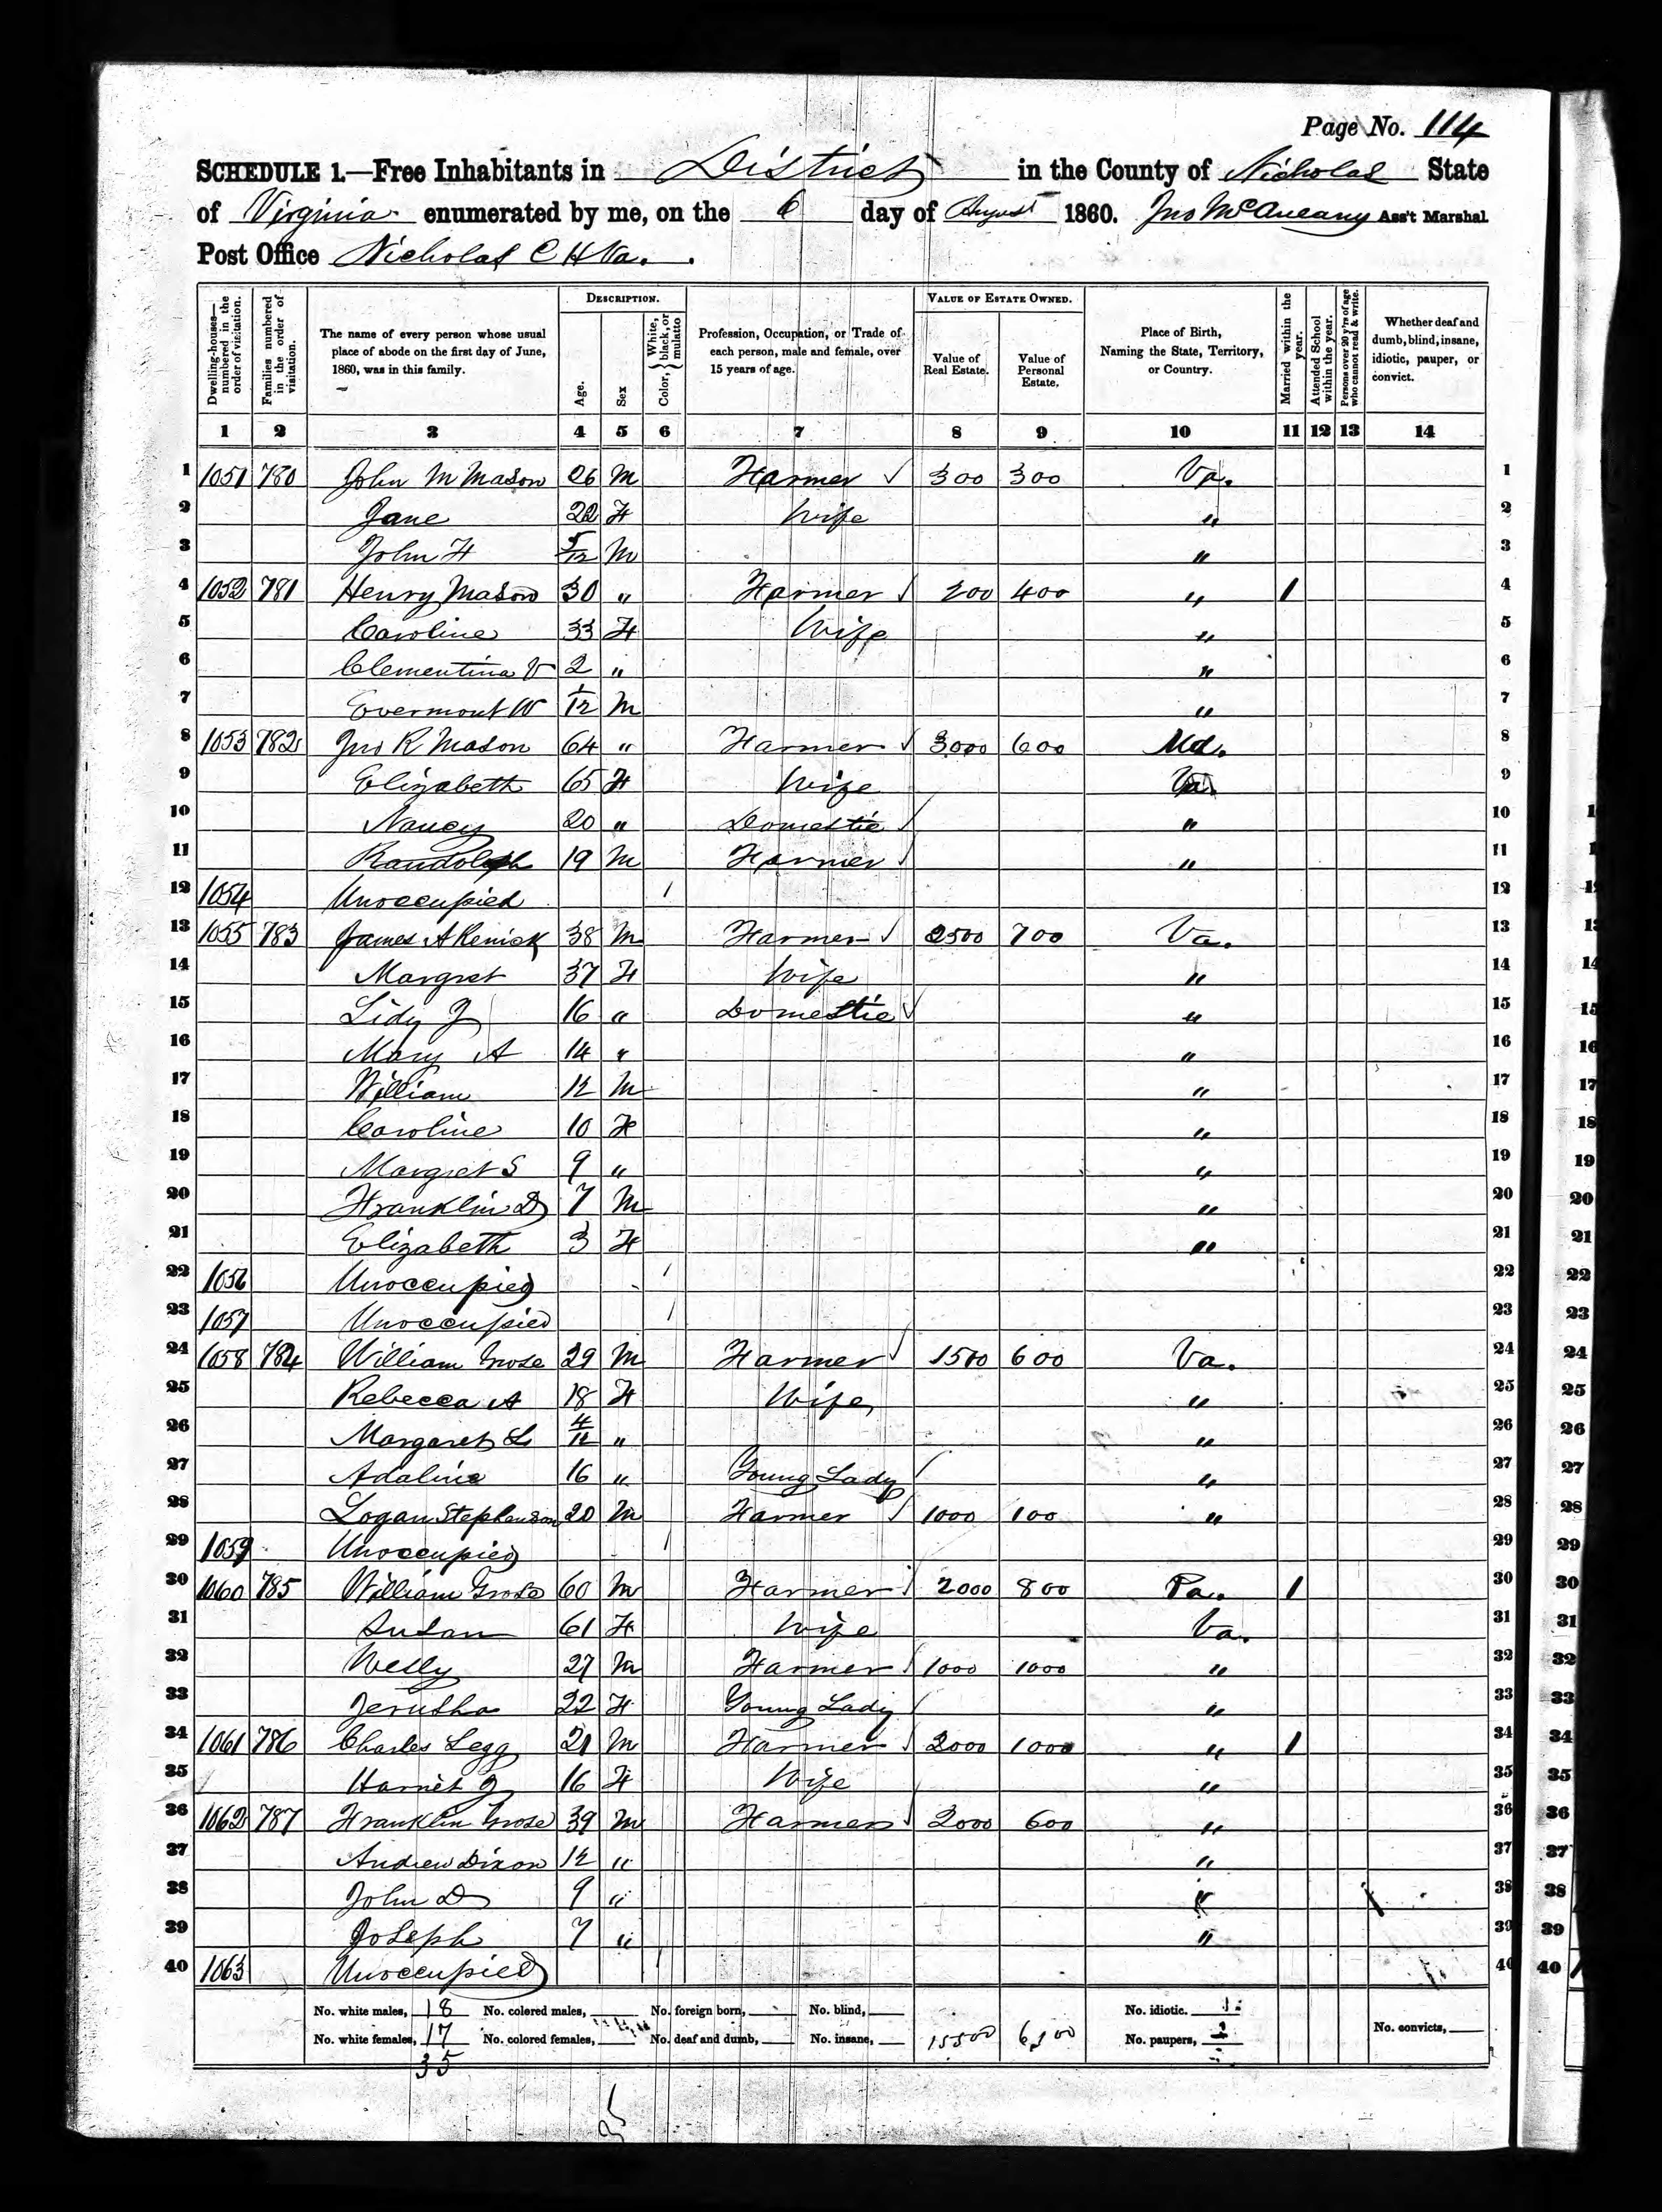 Page No. 114
SCHEDULE 1.—Free Inhabitants in District in the County of Nicholas State
of Virginia enumerated by me, on the 6 day of August 1860. Jno McAneany Ass't Marshal
Post Office Nicholas C H Va.
Dwelling-houses—numbered in the order of visitation. Families numbered in the order of visitation. The name of every person whose usual place of abode on the first day of June, 1860, was in this family. Description. Age. Sex Color, White, black, or mulatto Profession, Occupation, or Trade of each person, male and female, over 15 years of age. Value of Estate Owned. Value of Real Estate. Value of Personal Estate. Place of Birth, Naming the State, Territory, or Country. Married within the year. Attended School within the year. Persons over 20 y'rs of age who cannot read & write. Whether deaf and dumb, blind, insane, idiotic, pauper, or convict.
1 2 3 4 5 6 7 8 9 10 11 12 13 14
1 1051 780 John M Mason 26 M Farmer 300 300 Va. 1
2 Jane 22 F Wife " 2
3 John F 5/12 M " 3
4 1052 781 Henry Mason 30 " Farmer 200 400 " 1 4
5 Caroline 33 F Wife " 5
6 Clementina V 2 " " 6
7 Evermont W 1/12 M " 7
8 1053 782 Jno R Mason 64 " Farmer 3000 600 Md. 8
9 Elizabeth 65 F Wife Va. 9
10 Nancy 20 " Domestic " 10
11 Randolph 19 M Farmer " 11
12 1054 Unoccupied / 12
13 1055 783 James A Renick 38 M Farmer 2500 700 Va. 13
14 Margret 37 F Wife " 14
15 Lidy J 16 " Domestic " 15
16 Mary A 14 " " 16
17 William 12 M " 17
18 Caroline 10 F " 18
19 Margret S 9 " " 19
20 Franklin D 7 M " 20
21 Elizabeth 3 F " 21
22 1056 Unoccupied / 22
23 1057 Unoccupied / 23
24 1058 784 William Grose 29 M Farmer 1500 600 Va. 24
25 Rebecca A 18 F Wife " 25
26 Margaret L 4/12 " " 26
27 Adaline 16 " Young Lady " 27
28 Logan Stephenson 20 M Farmer 1000 100 " 28
29 1059 Unoccupied / 29
30 1060 785 William Grose 60 M Farmer 2000 800 Pa. 1 30
31 Susan 61 F Wife Va. 31
32 Welly 27 M Farmer 1000 1000 " 32
33 Jerusha 22 F Young Lady " 33
34 1061 786 Charles Legg 21 M Farmer 2000 1000 " 1 34
35 Harriet J 16 F Wife " 35
36 1062 787 Franklin Grose 39 M Farmer 2000 600 " 36
37 Andrew Dixon 12 " " 37
38 John D 9 " " 38
39 Joseph 7 " " 39
40 1063 Unoccupied / 40
No. white males, 18 No. colored males, No. foreign born, No. blind, No. idiotic.
No. white females, 17 No. colored females, No. deaf and dumb, No. insane, 15500 6100 No. paupers, No. convicts,
35